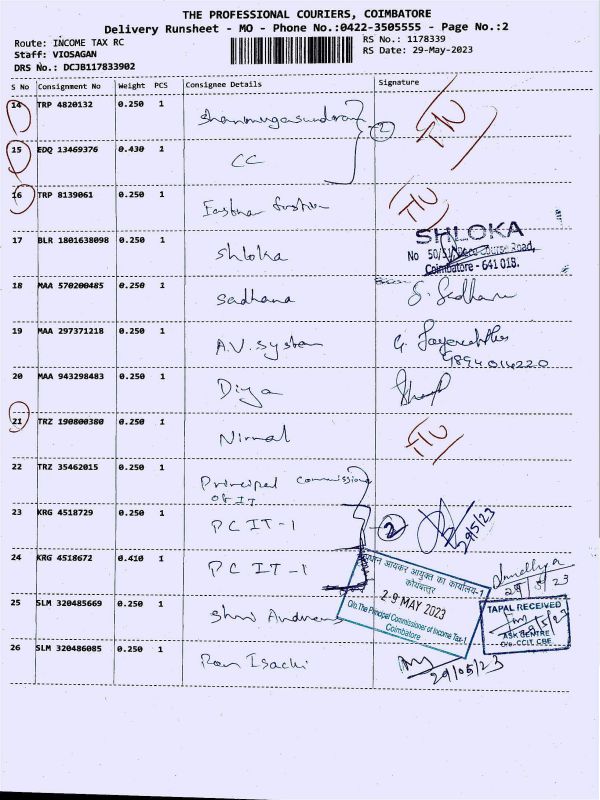 THE PROFESSIONAL COURIERS, COIMBATORE
Delivery Runsheet - MO - Phone No.:0422-3505555 - Page No.:2
Route: INCOME TAX RC
RS No.: 1178339
Staff: VIOSAGAN
RS Date: 29-May-2023
DRS No.: DCJB117833902
S No Consignment No Weight PCS Consignee Details Signature
14 TRP 4820132 0.250 1 Shanmugasundaram
2
15 EDQ 13469376 0.430 1 CC
16 TRP 8139061 0.250 1
17 BLR 1801638098 0.250 1 Shloka
SHLOKA
No 50/51, Race Course Road,
Coimbatore - 641 018.
18 MAA 570200485 0.250 1 Sadhana
19 MAA 297371218 0.250 1 A.V. System
9894014220
20 MAA 943298483 0.250 1 Diya
21 TRZ 190800380 0.250 1 Nirmal
22 TRZ 35462015 0.250 1 Principal Commissioner
of IT
23 KRG 4518729 0.250 1 PC IT-1
2
29/5/23
24 KRG 4518672 0.410 1 PC IT-1
29/5/23
प्रधान आयकर आयुक्त का कार्यालय-1
कोयम्बत्तूर
29 MAY 2023
O/o. The Principal Commissioner of Income Tax-1
Coimbatore
25 SLM 320485669 0.250 1 Shri Andrews
TAPAL RECEIVED
29/5/23
ASK CENTRE
O/o. CCIT, CBE
26 SLM 320486085 0.250 1 Ravi
29/05/23